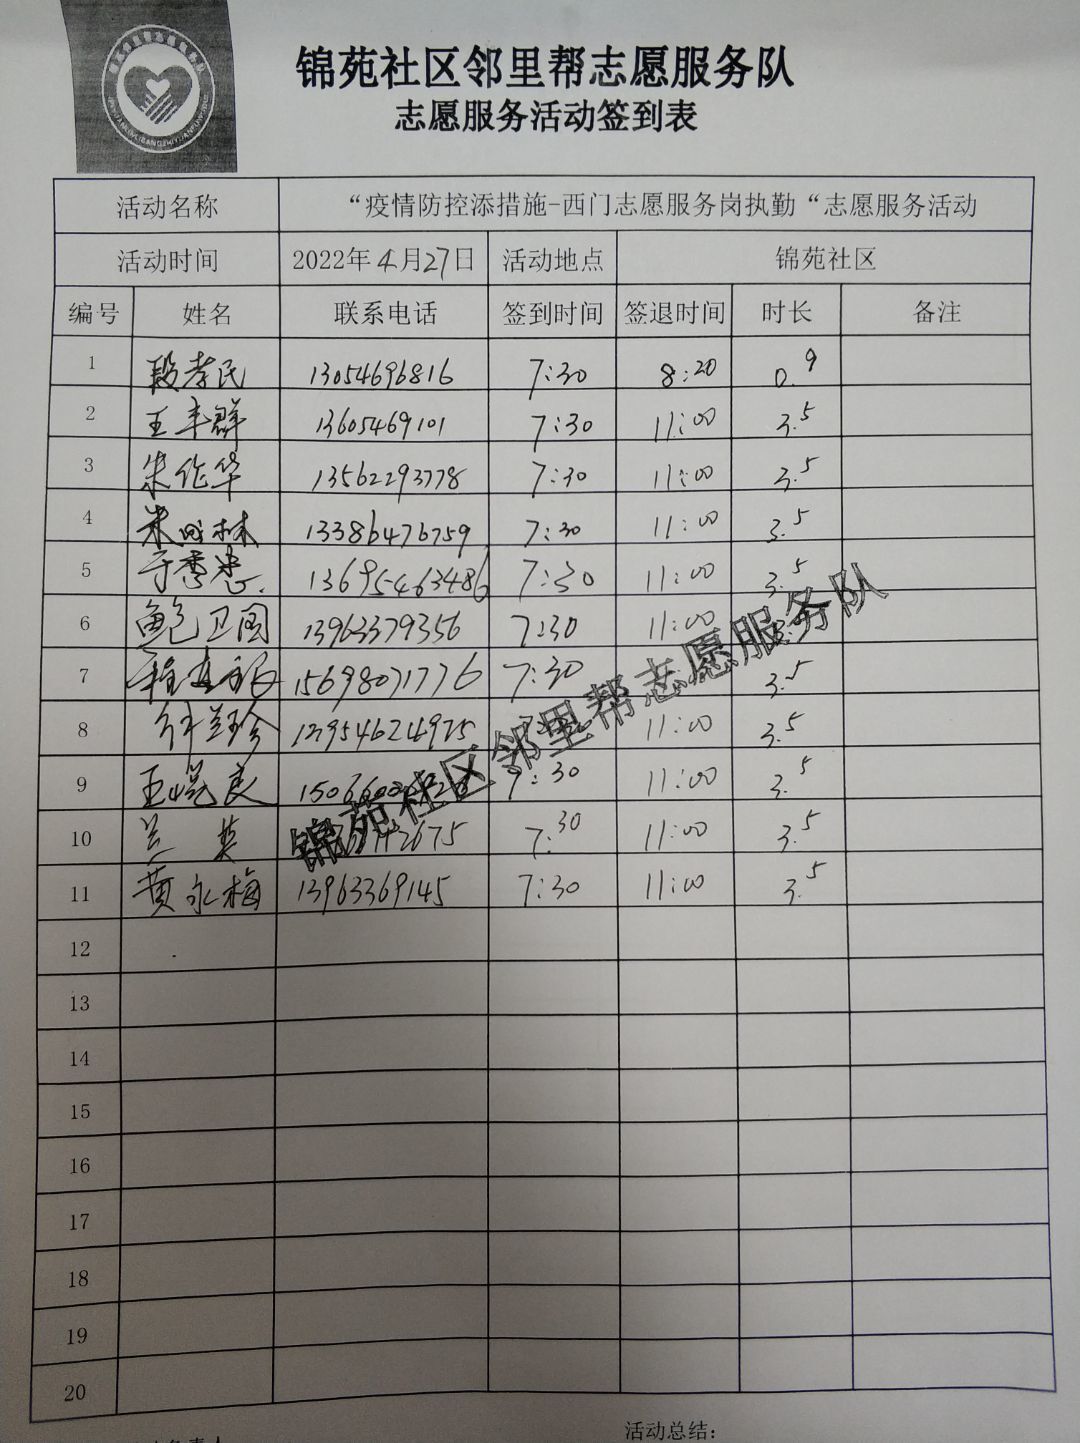 锦苑社区邻里帮志愿服务队
志愿服务活动签到表
活动名称 “疫情防控添措施-西门志愿服务岗执勤“志愿服务活动
活动时间 2022年4月27日 活动地点 锦苑社区
编号 姓名 联系电话 签到时间 签退时间 时长 备注
1 段孝民 13054696816 7:30 8:20 0.9
2 王丰群 13605469101 7:30 11:00 3.5
3 朱作华 13562293778 7:30 11:00 3.5
4 13386476759 7:30 11:00 3.5
5 于秀忠 13695463486 7:30 11:00 3.5
6 鲍卫国 13963379356 7:30 11:00
7 15698071776 7:30 3.5
8 11:00 3.5
9 7:30 11:00 3.5
10 兰英 7:30 11:00 3.5
11 黄永梅 13963369145 7:30 11:00 3.5
12
13
14
15
16
17
18
19
20
锦苑社区邻里帮志愿服务队
活动总结: